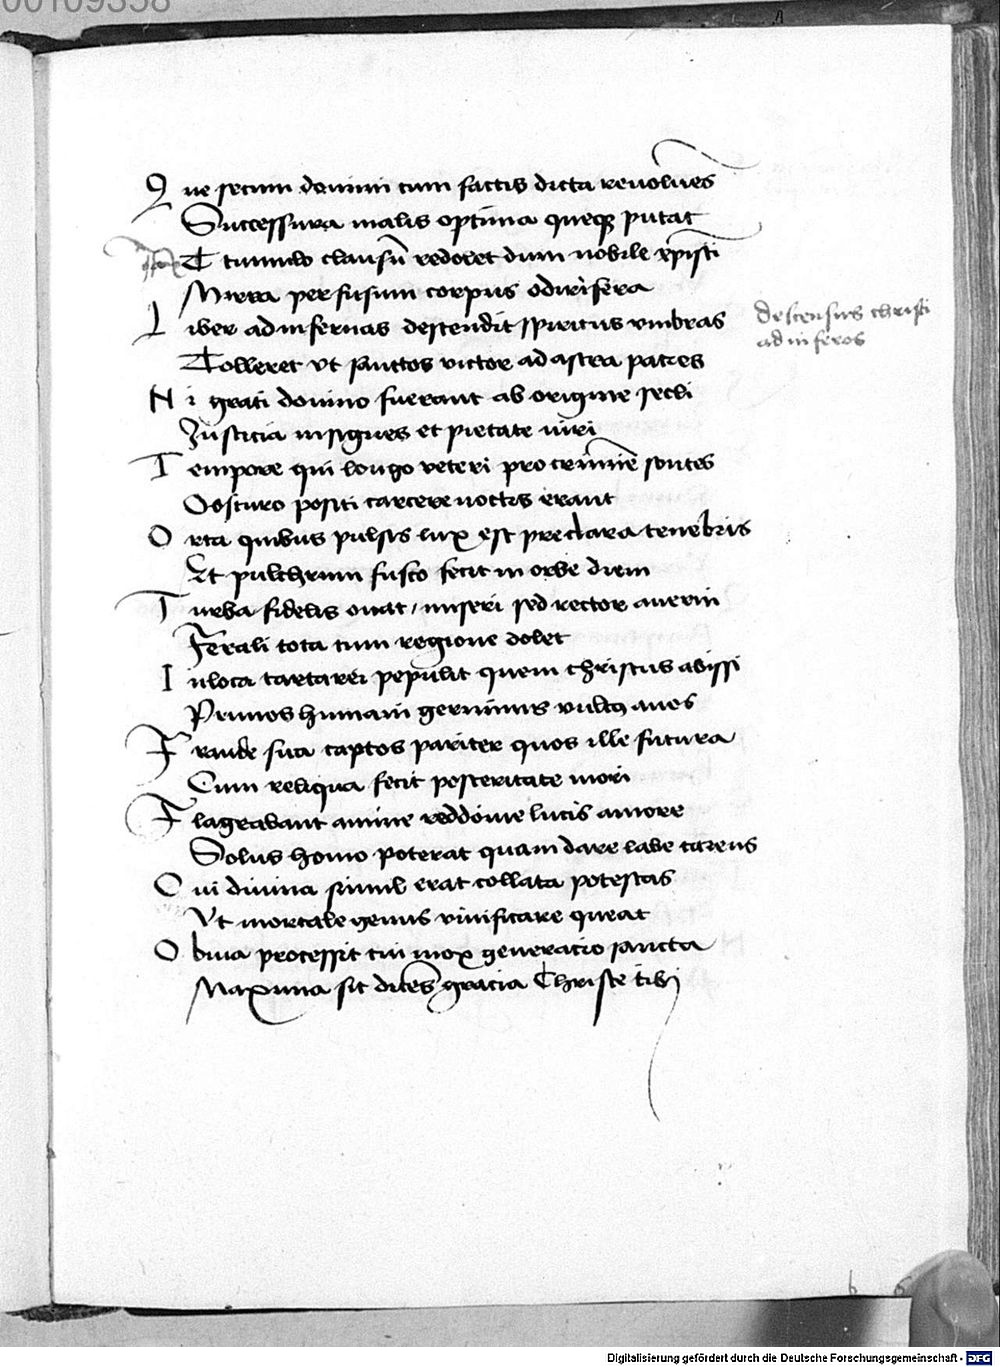 00109358
Que secum domini cum factis dicta reuolue͂s
Successura malis optima queq putat
Et tumulo clausu͂ redoret dum nobile xpisti
Mirra perfusum corpus odirifera
Liber ad infernas descendit spiritus vmbras
descensus christi
ad inferos
Tolleret vt sanctos victor ad astra patres
Hi grati domino fuerant ab origine secli
Justicia insignes et pietate uiri
Tempore qui longo veteri pro crimi͂e sontes
Obscuro positi carcere noctis erant
Orta quibus pulsis lux est preclara tenebris
Et pulchrum fusco fecit in orbe diem
Turba fidelis ouat / miseri sed rector auerni
Ferali tota cum regione dolet
In loca tartarei pepulit quem christus abissi
Primos humani germinis vultq auos
Fraude sua captos pariter quos ille futura
Cum reliqua fecit posteritate mori
Flagrabant anime reddi͂ue lucis amore
Solus homo poterat quam dare labe carens
Cui diuina simul erat collata potestas
Vt mortale genus viuificare queat
Obuia processit cui mox generatio sancta
Maxima sit dice͂s gracia Christe tibi
Digitalisierung gefördert durch die Deutsche Forschungsgemeinschaft - DFG